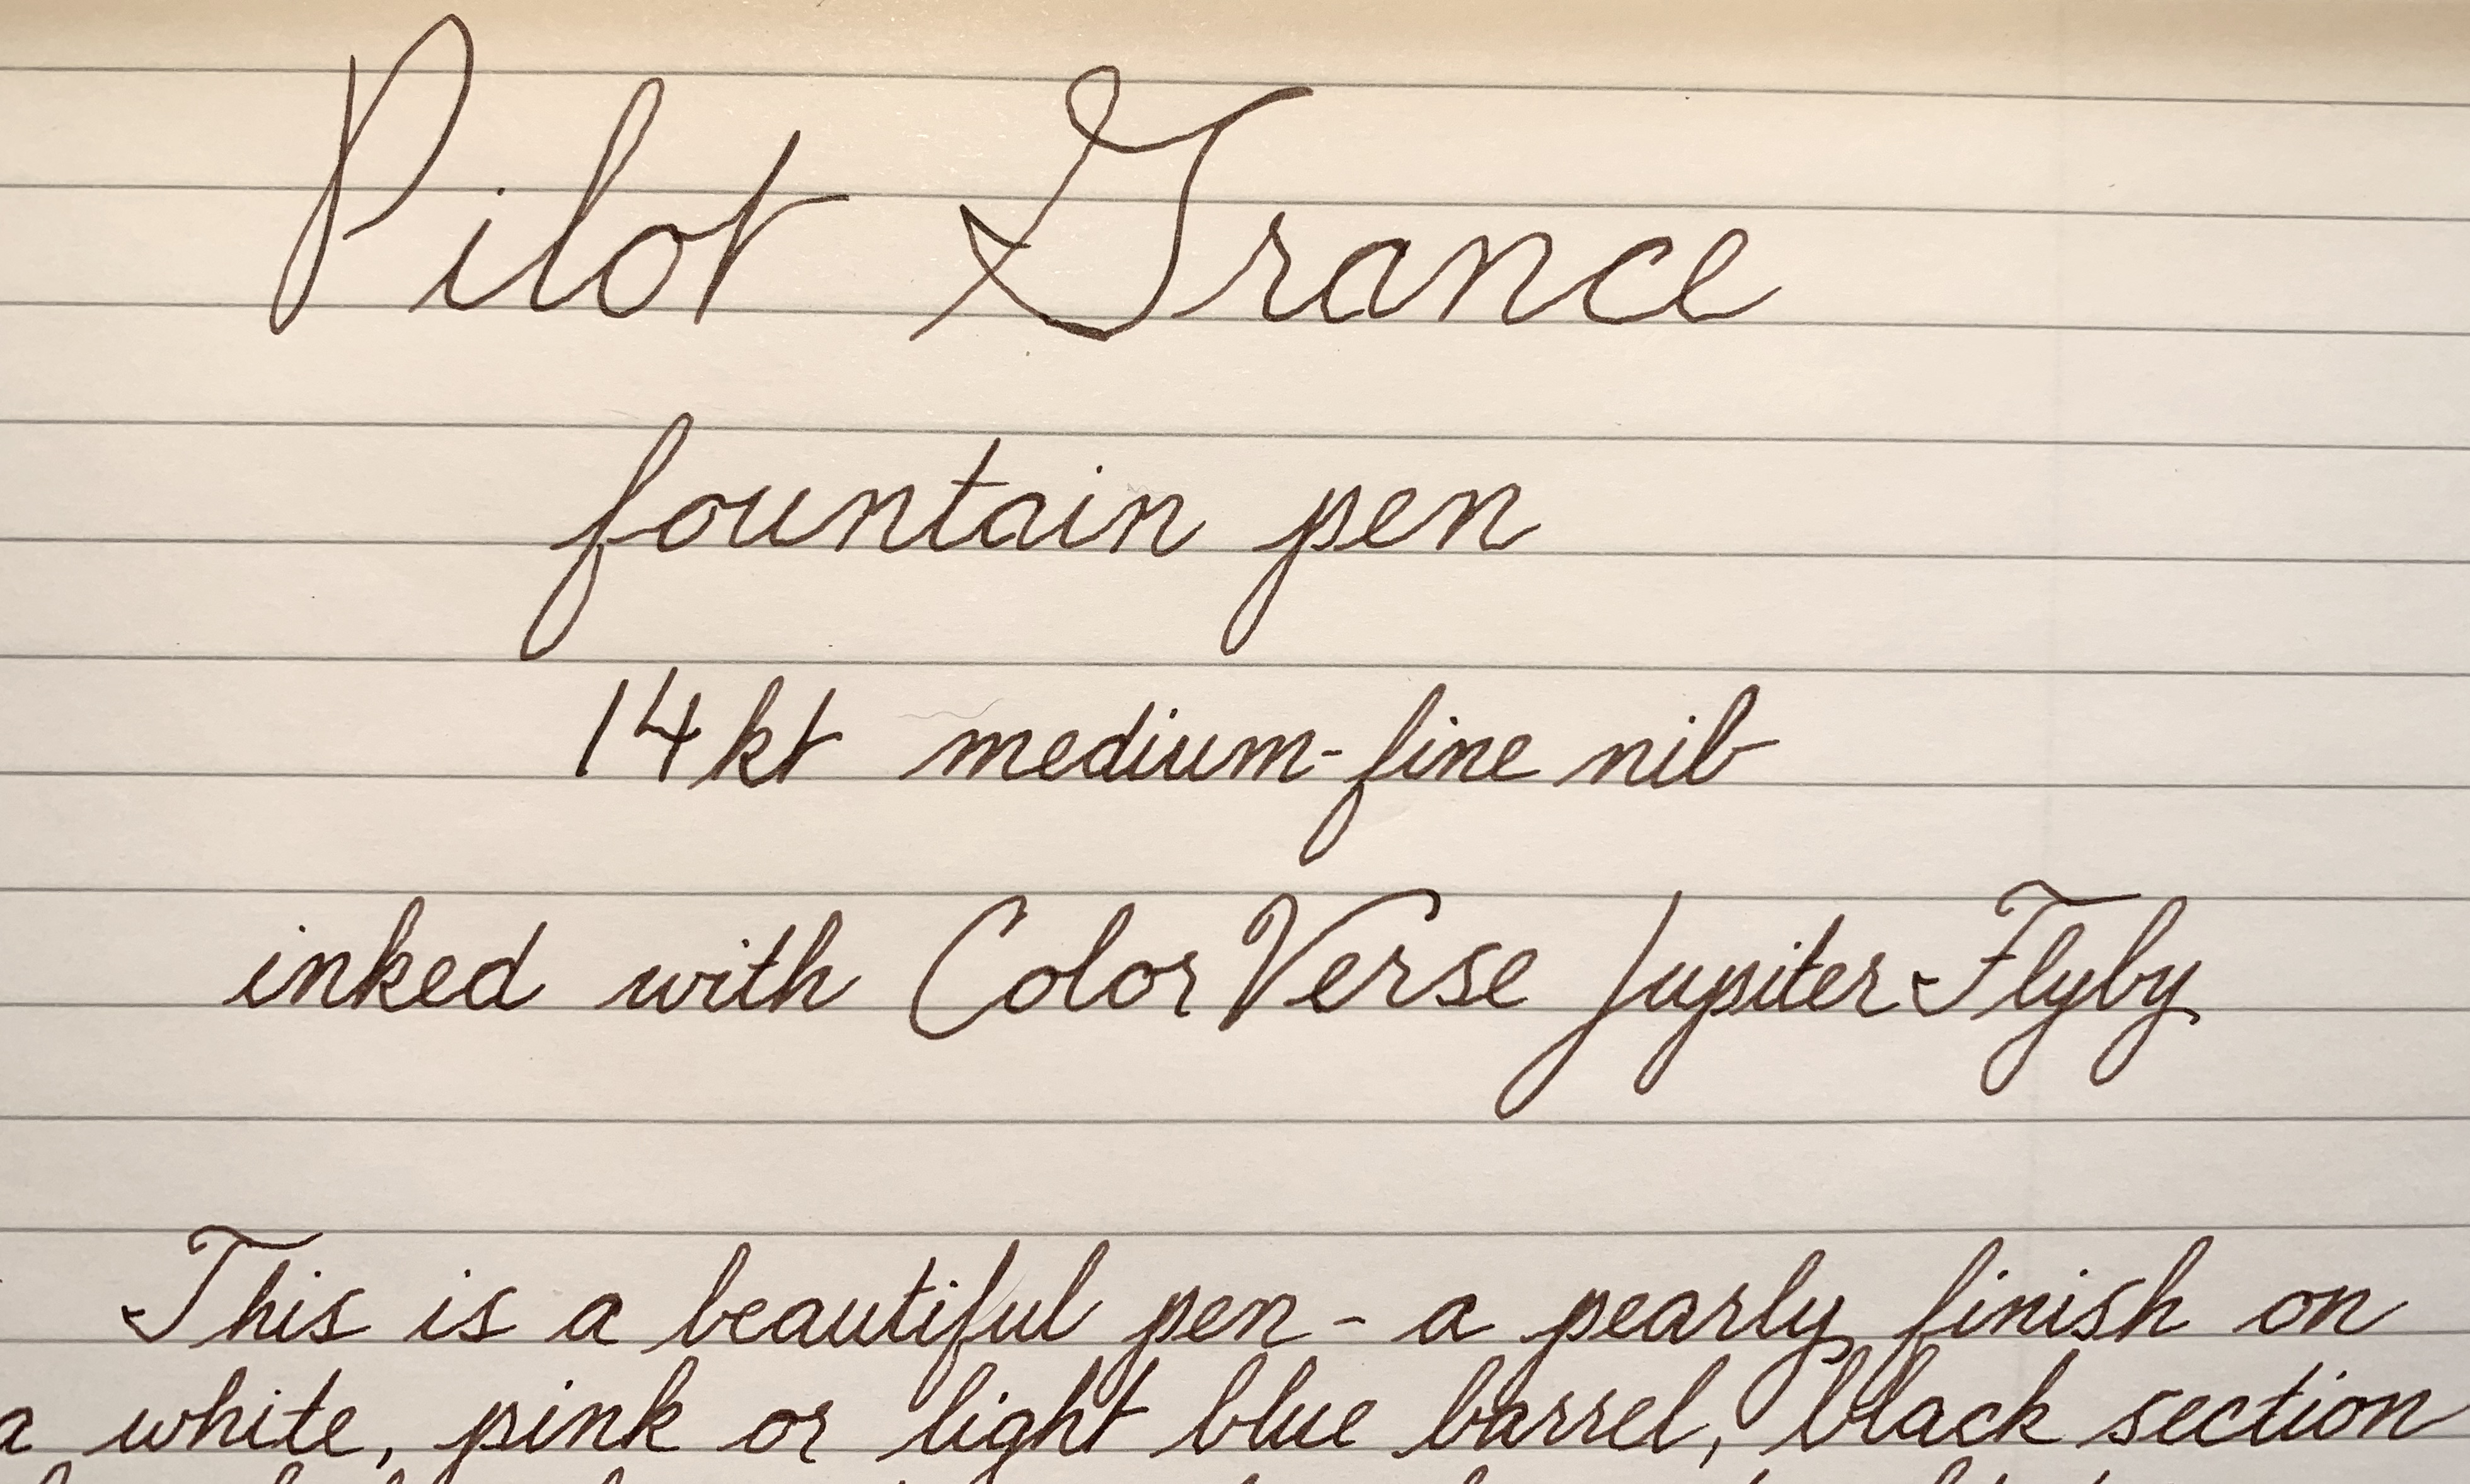 Pilot Grance
fountain pen
14kt medium-fine nib
inked with ColorVerse Jupiter Flyby
This is a beautiful pen - a pearly finish on
a white, pink or light blue barrel, black section